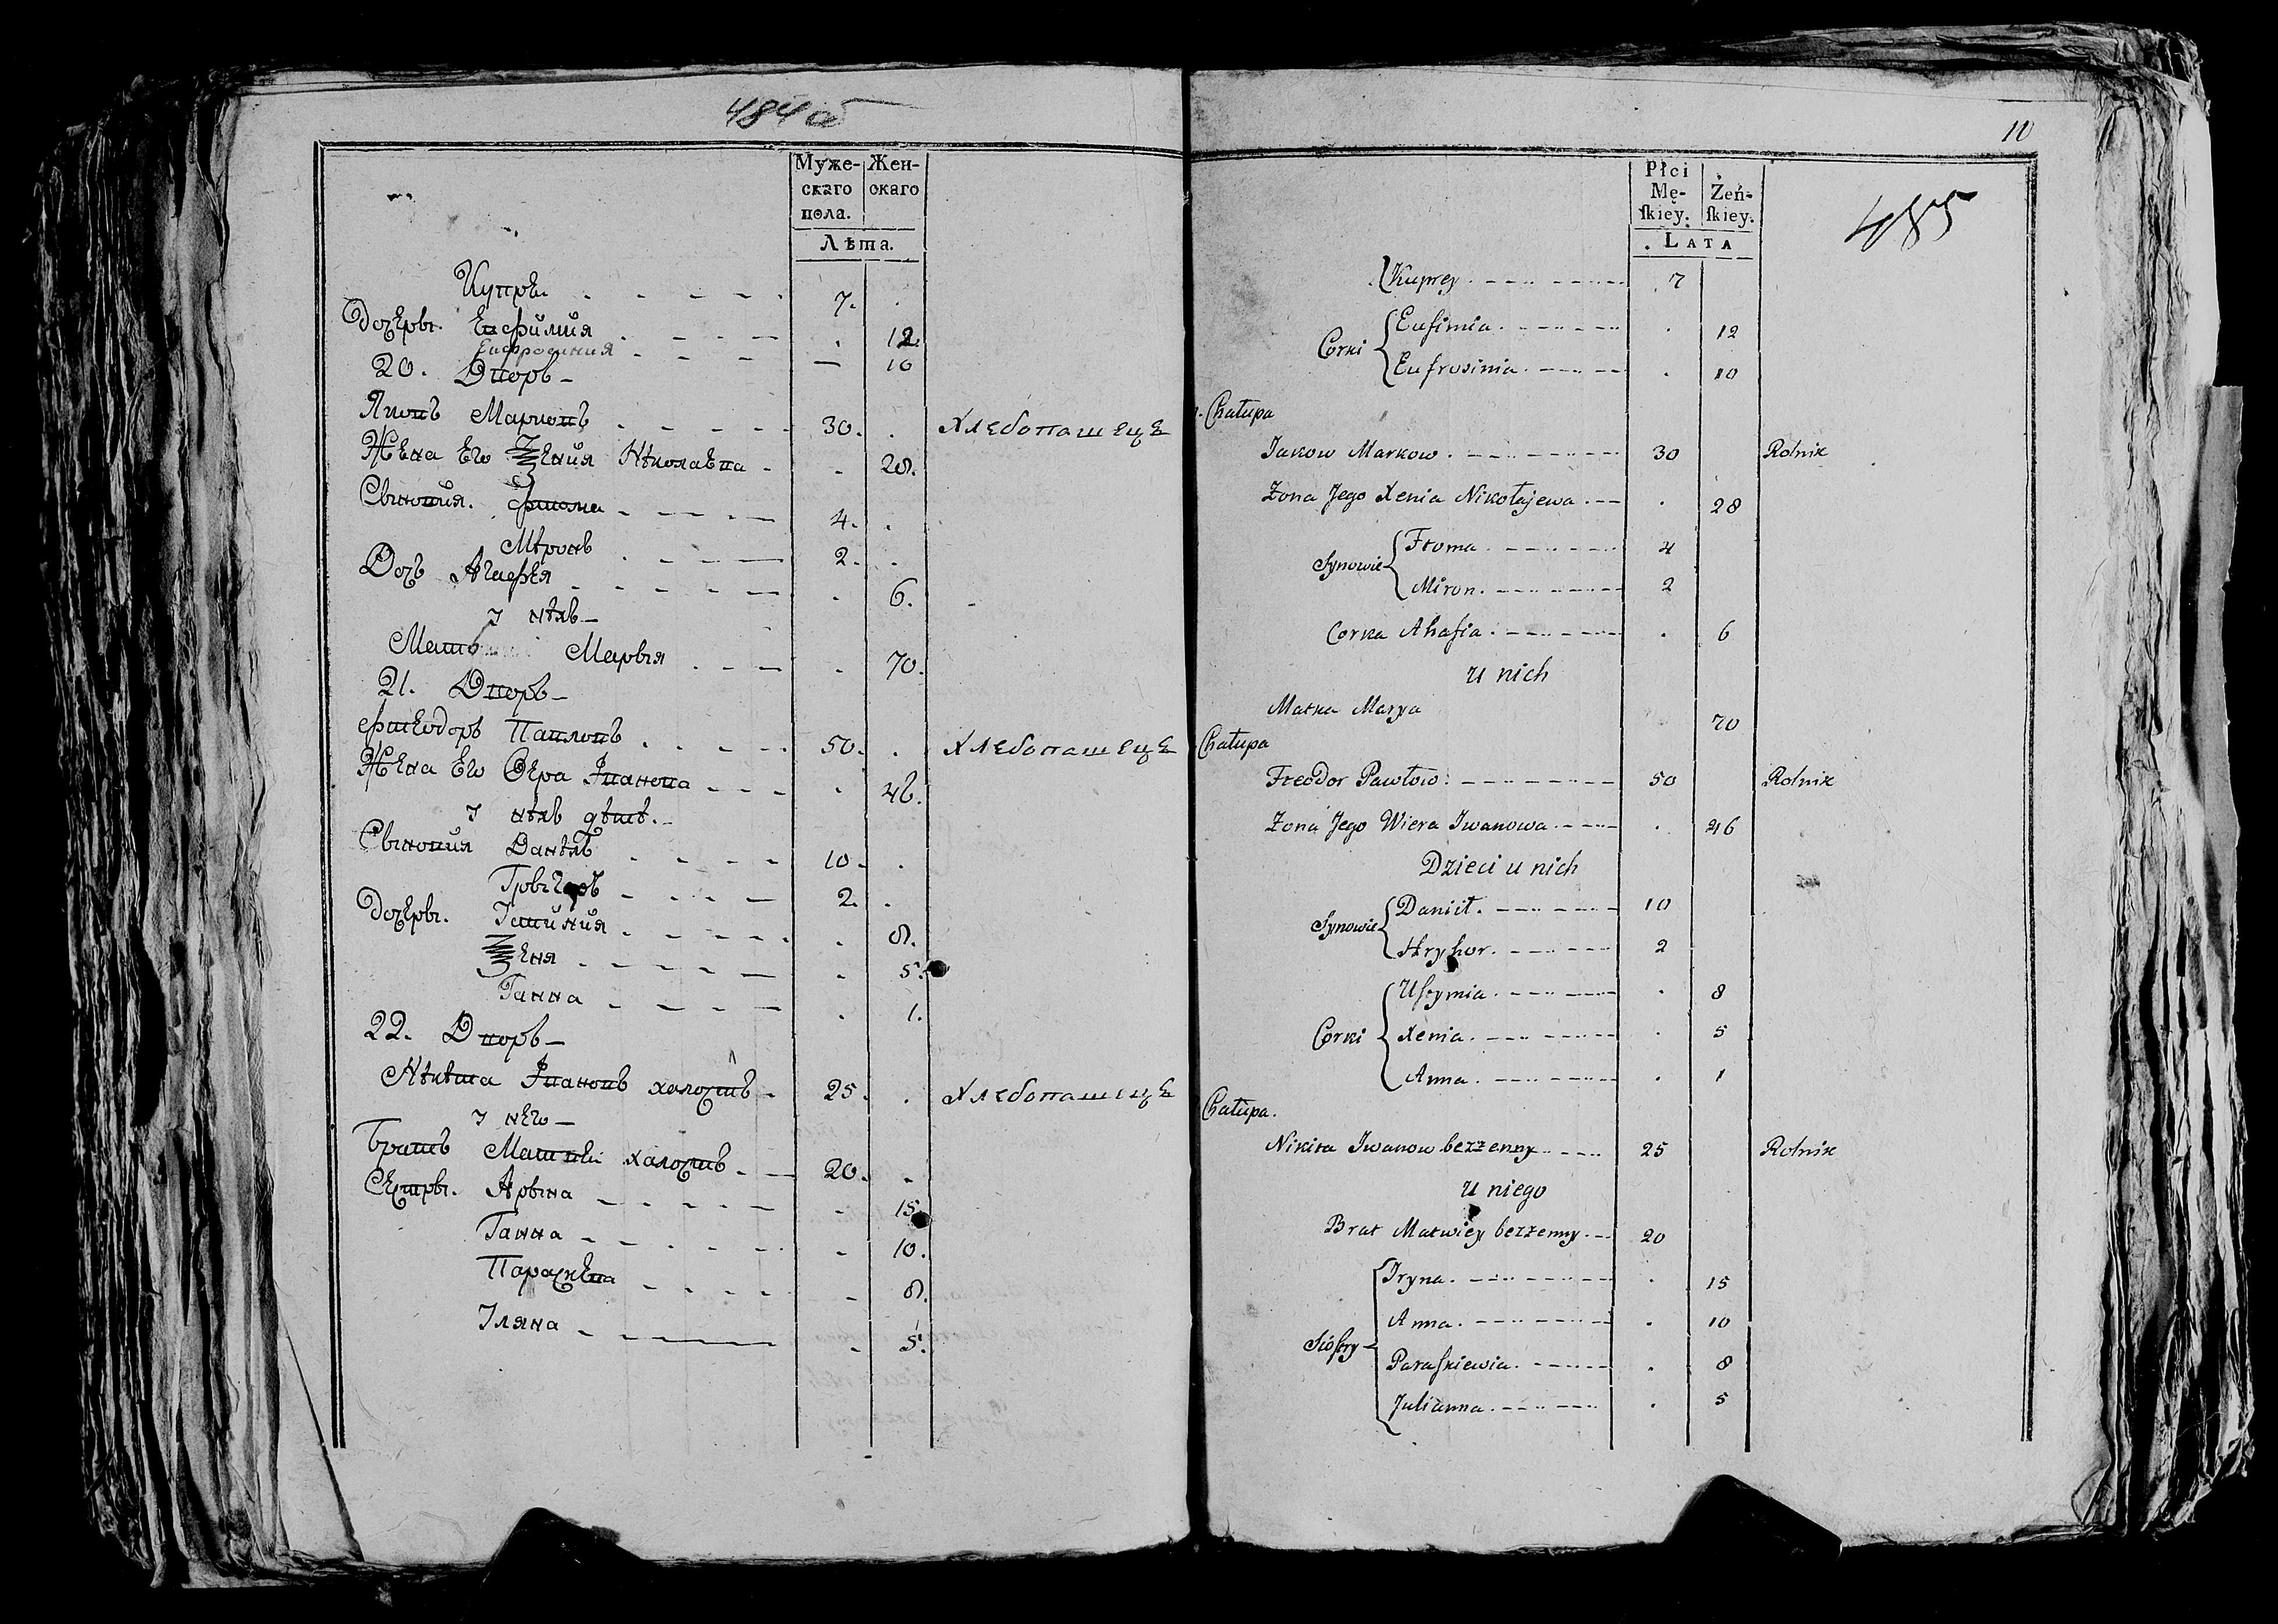 484об
Муже- Жен-
скаго скаго
пола.
Лѣта.
Купрей 7.
Дочеры. Евфимия 12.
Евфросиния — 10
20. Дворъ
Яковъ Марковъ 30. Хлебопашеце
Жена Его Ѯения Нѣколаева 28.
Сыновия. Фтома 4.
Мѣронъ 2.
Дочь Агафея 6.
У нѣхъ
Мать Марыя 70.
21. Дворъ
Фтеодоръ Павловъ 50. Хлебопашеце
Жена Его Вера Ивановa 46.
У нѣхъ дѣтѣ.
Сыновия Данѣлъ 10.
Грыгоръ 2.
Дочеры. Устиния 8.
Ѯеня 5.
Ганна 1.
22. Дворъ
Нѣкѣта Ивановъ холостъ 25. Хлебопашеце
У него
Братъ Матвей холостъ 20.
Сестры. Арына 15
Ганна 10.
Параскева 8.
Уляна 5.
10
Płci
Mę-
skiey. Żeń-
skiey.
LATA
485
Kuprey 7
Corki Eufimia 12
Eufrosinia 10
Chałupa
Jakow Markow 30 Rolnik
Zona Jego Xenia Nikołajewa 28
Synowie Ftoma 4
Miron 2
Corka Ahafia 6
u nich
Matka Marya 70
Chałupa
Fteodor Pawłow 50 Rolnik
Zona Jego Wiera Iwanowa 46
Dzieci u nich
Synowie Danił 10
Hryhor 2
Corki Ustymia 8
Xenia 5
Anna 1
Chałupa.
Nikita Iwanow bezżenny 25 Rolnik
u niego
Brat Matwiey bezżenny 20
Siostry Iryna 15
Anna 10
Paraskiewia 8
Julianna 5